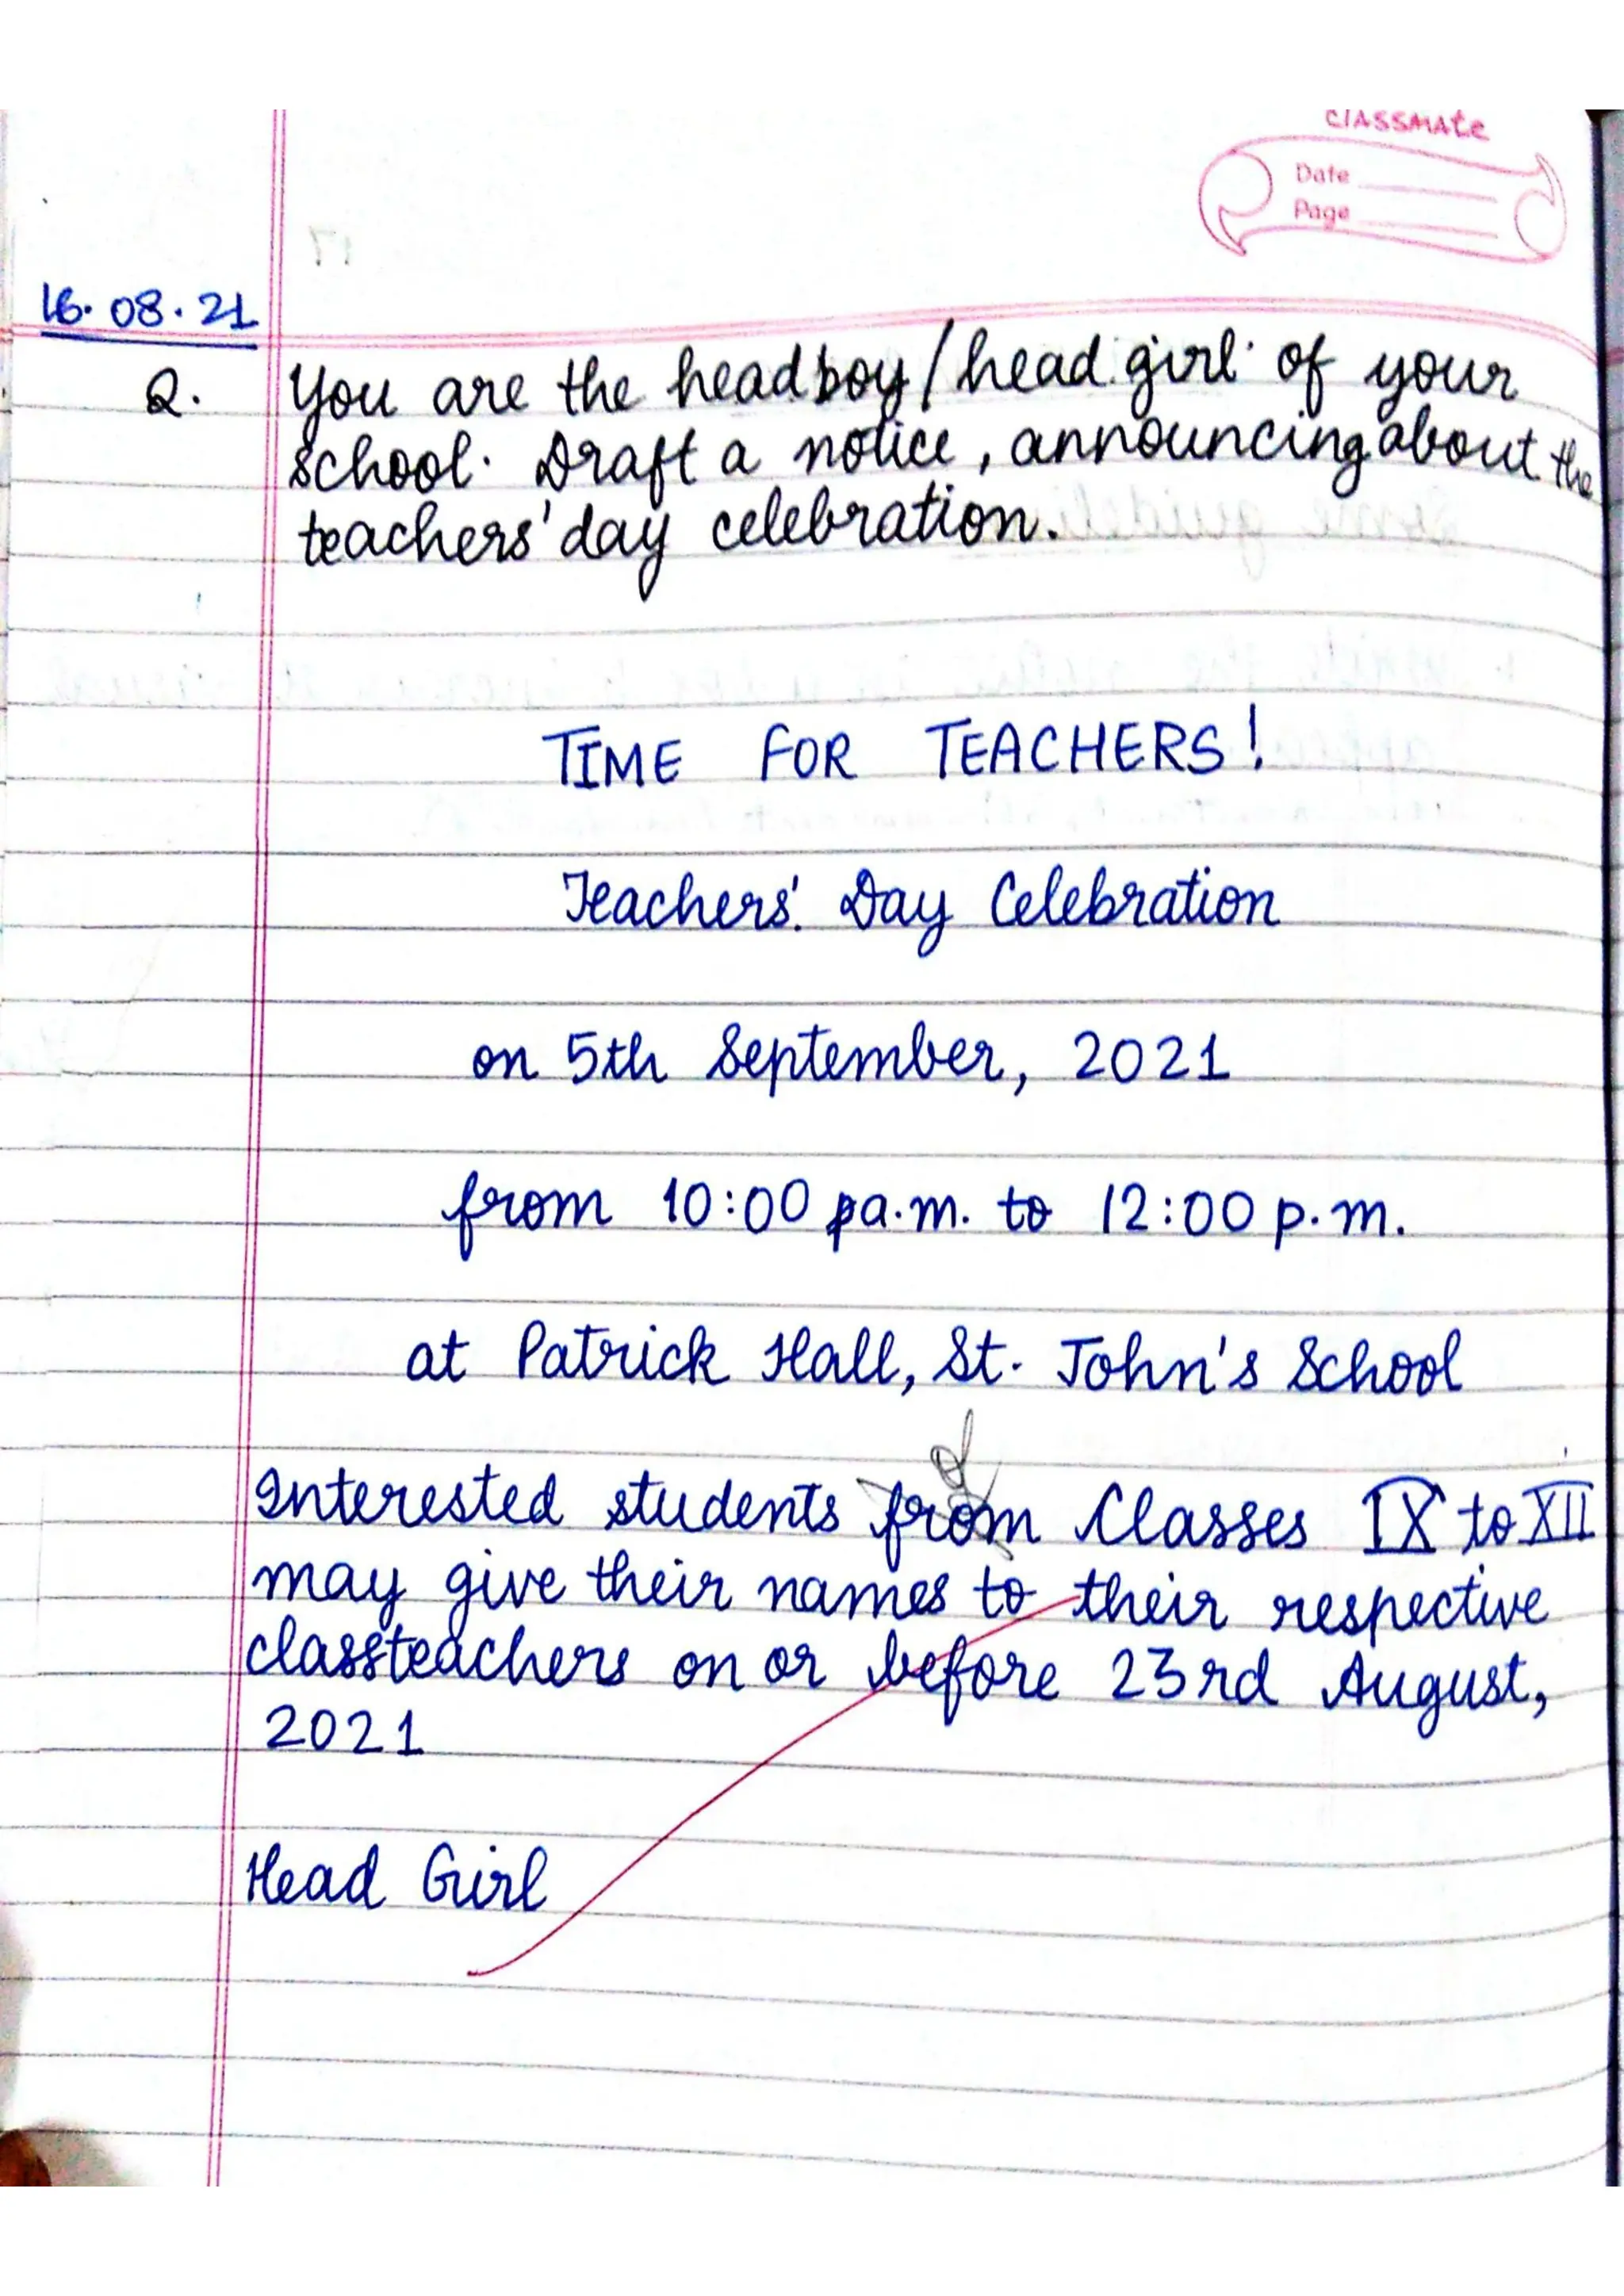 classmate
Date
Page
16.08.21
Q. You are the headboy/head girl of your
school. Draft a notice, announcing about the
teachers' day celebration.
TIME FOR TEACHERS!
Teachers' Day Celebration
on 5th September, 2021
from 10:00 pa.m. to 12:00 p.m.
at Patrick Hall, St. John's School
of
Interested students from Classes IX to XII
may give their names to their respective
classteachers on or before 23rd August,
2021
Head Girl